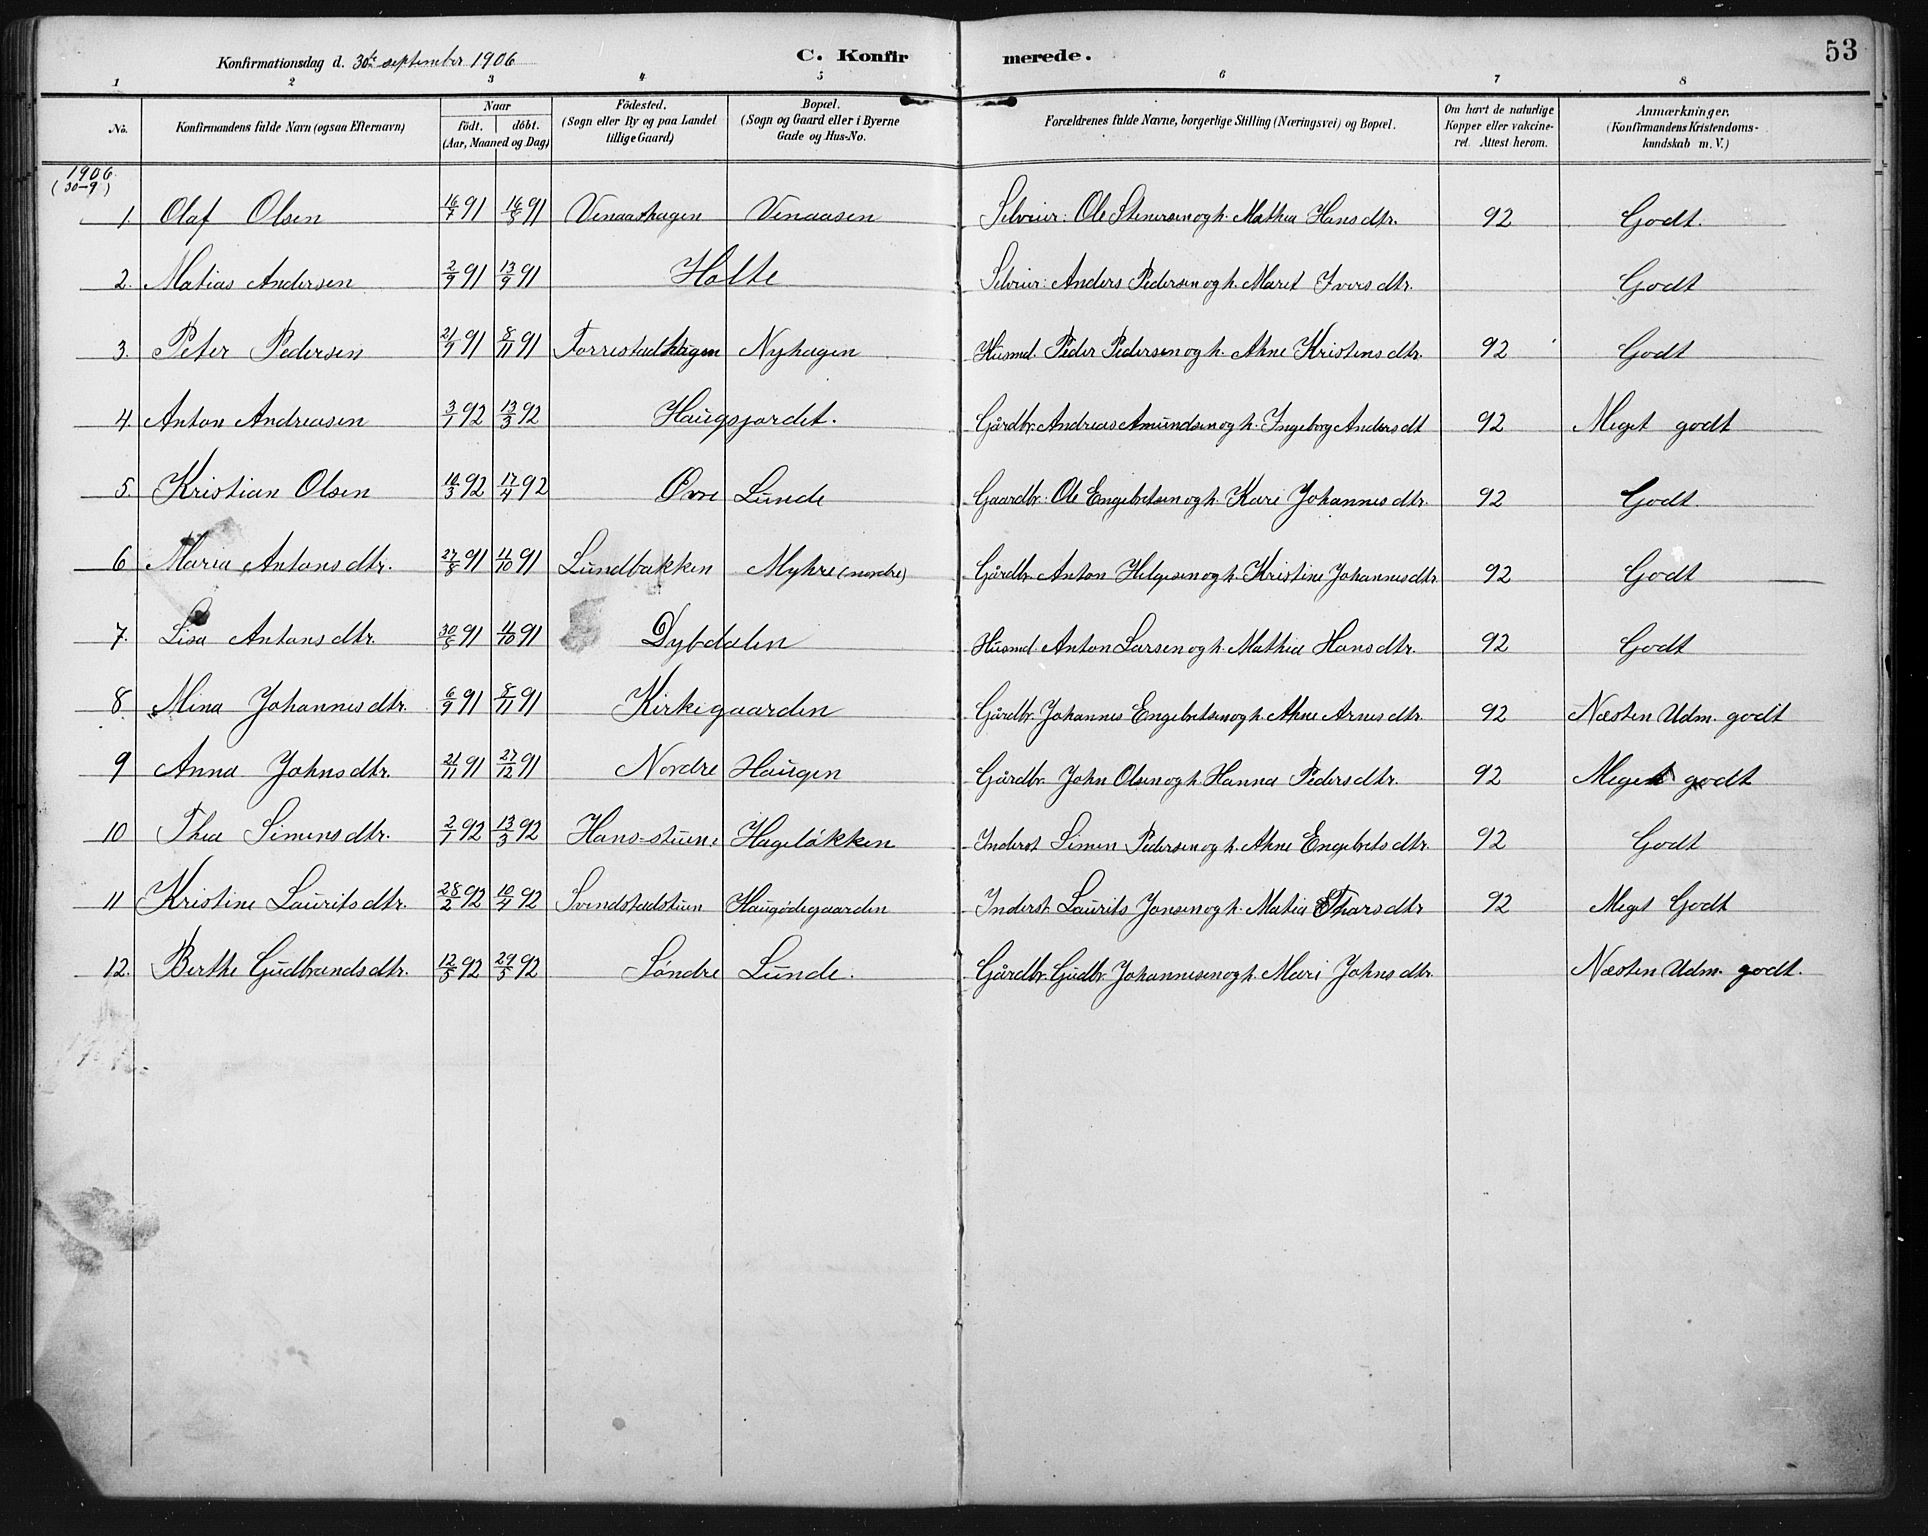 Konfirmationsdag d. 30te september 1906 C. Konfirmerede. 53
1 2 3 4 5 6 7 8
No. Konfirmandens fulde Navn (ogsaa Efternavn) Naar født. døbt. (Aar, Maaned og Dag) Fødested. (Sogn eller By og paa Landet tillige Gaard) Bopæl. (Sogn og Gaard eller i Byerne Gade og Hus-No. Forældrenes fulde Navne, borgerlige Stilling (Næringsvei) og Bopæl. Om havt de naturlige Kopper eller vakcineret. Attest herom. Anmærkninger. (Konfirmandens Kristendomskundskab m. V.)
1906.
(30-9)
1. Olaf Olsen 16/7 91 16/8 91 Venaashagen Venaasen Selveier: Ole Stenersen og h. Mathea Hansdtr. 92 Godt.
2. Matias Andersen 2/9 91 13/9 91 Holte Selveier: Anders Pedersen og h. Maret Iversdtr. Godt
3. Peter Pedersen 21/9 91 8/11 91 Forrestadhagen Nyhagen Husmd. Peder Pedersen og h. Ahne Kristensdtr. 92 Godt
4. Anton Andreasen 3/1 92 13/3 92 Haugsjordet. Gårdbr. Andreas Amundsen og h. Ingeborg Andersdt 92 Meget godt
5. Kristian Olsen 14/3 92 17/4 92 Øvre Lunde Gaardbr: Ole Engebretsen og h. Kari Johannesdtr. 92 Godt.
6 Maria Antonsdtr. 27/8 91 11/10 91 Lundbakken Myhre (nordre) Gårdbr. Anton Helgesen og h. Kristine Johannesdtr 92 Godt
7. Lisa Antonsdtr. 30/8 91 11/10 91 Dybdalen Husmd. Anton Larsen og h. Mathea Hansdtr. 92 Godt
8 Mina Johannesdtr. 6/9 91 8/11 91 Kirkegaarden Gårdbr. Johannes Engebretsen og h. Ahne Arnesdtr. 92 Næsten Udm. godt
9 Anna Johnsdtr. 21/11 91 27/12 91 Nordre Haugen Gårdbr. John Olsen og h. Hanna Pedersdtr. 92 Meget godt
10 Thea Simensdtr. 2/1 92 13/3 92 Hans-stuene Hageløkken Inderst Simen Pedersen og h. Ahne Engebretsdtr. 92 Godt
11 Kristine Lauritsdtr. 28/2 92 10/4 92 Svendstadstuen Haugødegaarden Inderst. Laurits Jensen og h. Matia Tharsdtr 92 Meget Godt
12. Berthe Gudbrandsdtr. 12/5 92 29/5 92 Søndre Lunde. Gårdbr. Gudbr. Johannesen og h. Mari Johnsdtr. Næsten Udm. godt.